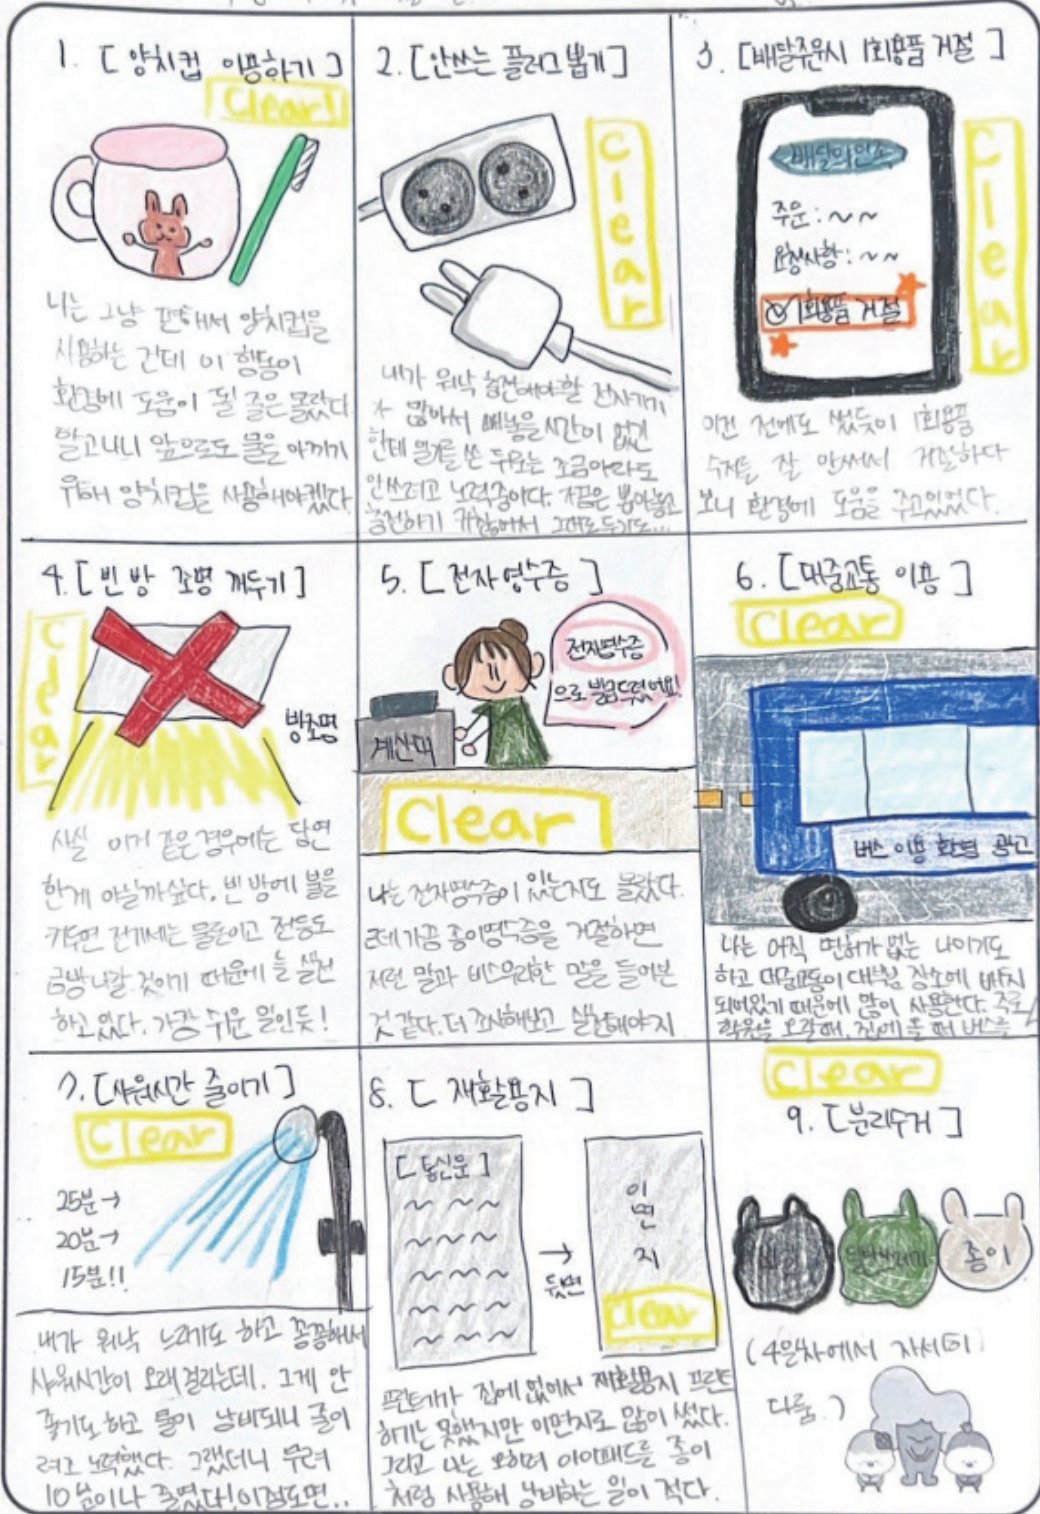 1. [ 양치컵 이용하기 ]
Clear!
나는 그냥 편해서 양치컵을
사용하는 건데 이 행동이
환경에 도움이 될 줄은 몰랐다
알고나니 앞으로도 물을 아끼기
위해 양치컵을 사용해야겠다.
2. [안쓰는 플러그 뽑기]
Clear
내가 워낙 충전해야할 전자기기
가 많아서 빼놓을 시간이 없긴
한데 일기를 쓴 뒤로는 조금이라도
안쓰려고 노력중이다. 가끔은 뽑아놓고
충전하기 귀찮아서 그대로 두기도...
3. [배달주문시 1회용품 거절 ]
Clear
배달의민족
주문 : ~ ~
요청사항 : ~ ~
1회용품 거절
이건 전에도 썼듯이 1회용품
수저를 잘 안써서 거절하다
보니 환경에 도움을 주고있었다.
4. [ 빈 방 조명 꺼두기 ]
Clear
방조명
사실 이거 같은 경우에는 당연
한게 아닐까싶다. 빈 방에 불을
키두면 전기세는 물론이고 전등도
금방 나갈 것이기 때문에 늘 실천
하고 있다. 가장 쉬운 일인듯!
5. [ 전자영수증 ]
전자영수증
으로 발급드렸어요!
계산대
Clear
나는 전자영수증이 있는지도 몰랐다.
근데 가끔 종이영수증을 거절하면
저런 말과 비스무리한 말을 들어본
것 같다. 더 조사해보고 실천해야지
6. [ 대중교통 이용 ]
Clear
버스 이용 환영 광고
나는 아직 면허가 없는 나이기도
하고 대중교통이 대부분 장소에 배치
되어있기 때문에 많이 사용한다. 주로
학원을 오갈때, 집에 올 때 버스를
7. [샤워시간 줄이기 ]
Clear
25분→
20분→
15분!!
내가 워낙 느리기도 하고 꼼꼼해서
샤워시간이 오래 걸리는데. 그게 안
좋기도 하고 물이 낭비되니 줄이
려고 노력했다. 그랬더니 무려
10분이나 줄였다! 이정도면..
8. [ 재활용지 ]
[ 통신문 ]
→
뒷면
이
면
지
Clear
프린트기가 집에 없어서 재활용지 프린트
하기는 못했지만 이면지로 많이 썼다.
그리고 나는 오히려 아이패드를 종이
처럼 사용해 낭비하는 일이 적다.
Clear
9. [ 분리수거 ]
비닐
일반쓰레기
종이
(4일차에서 자세히
다룸.)